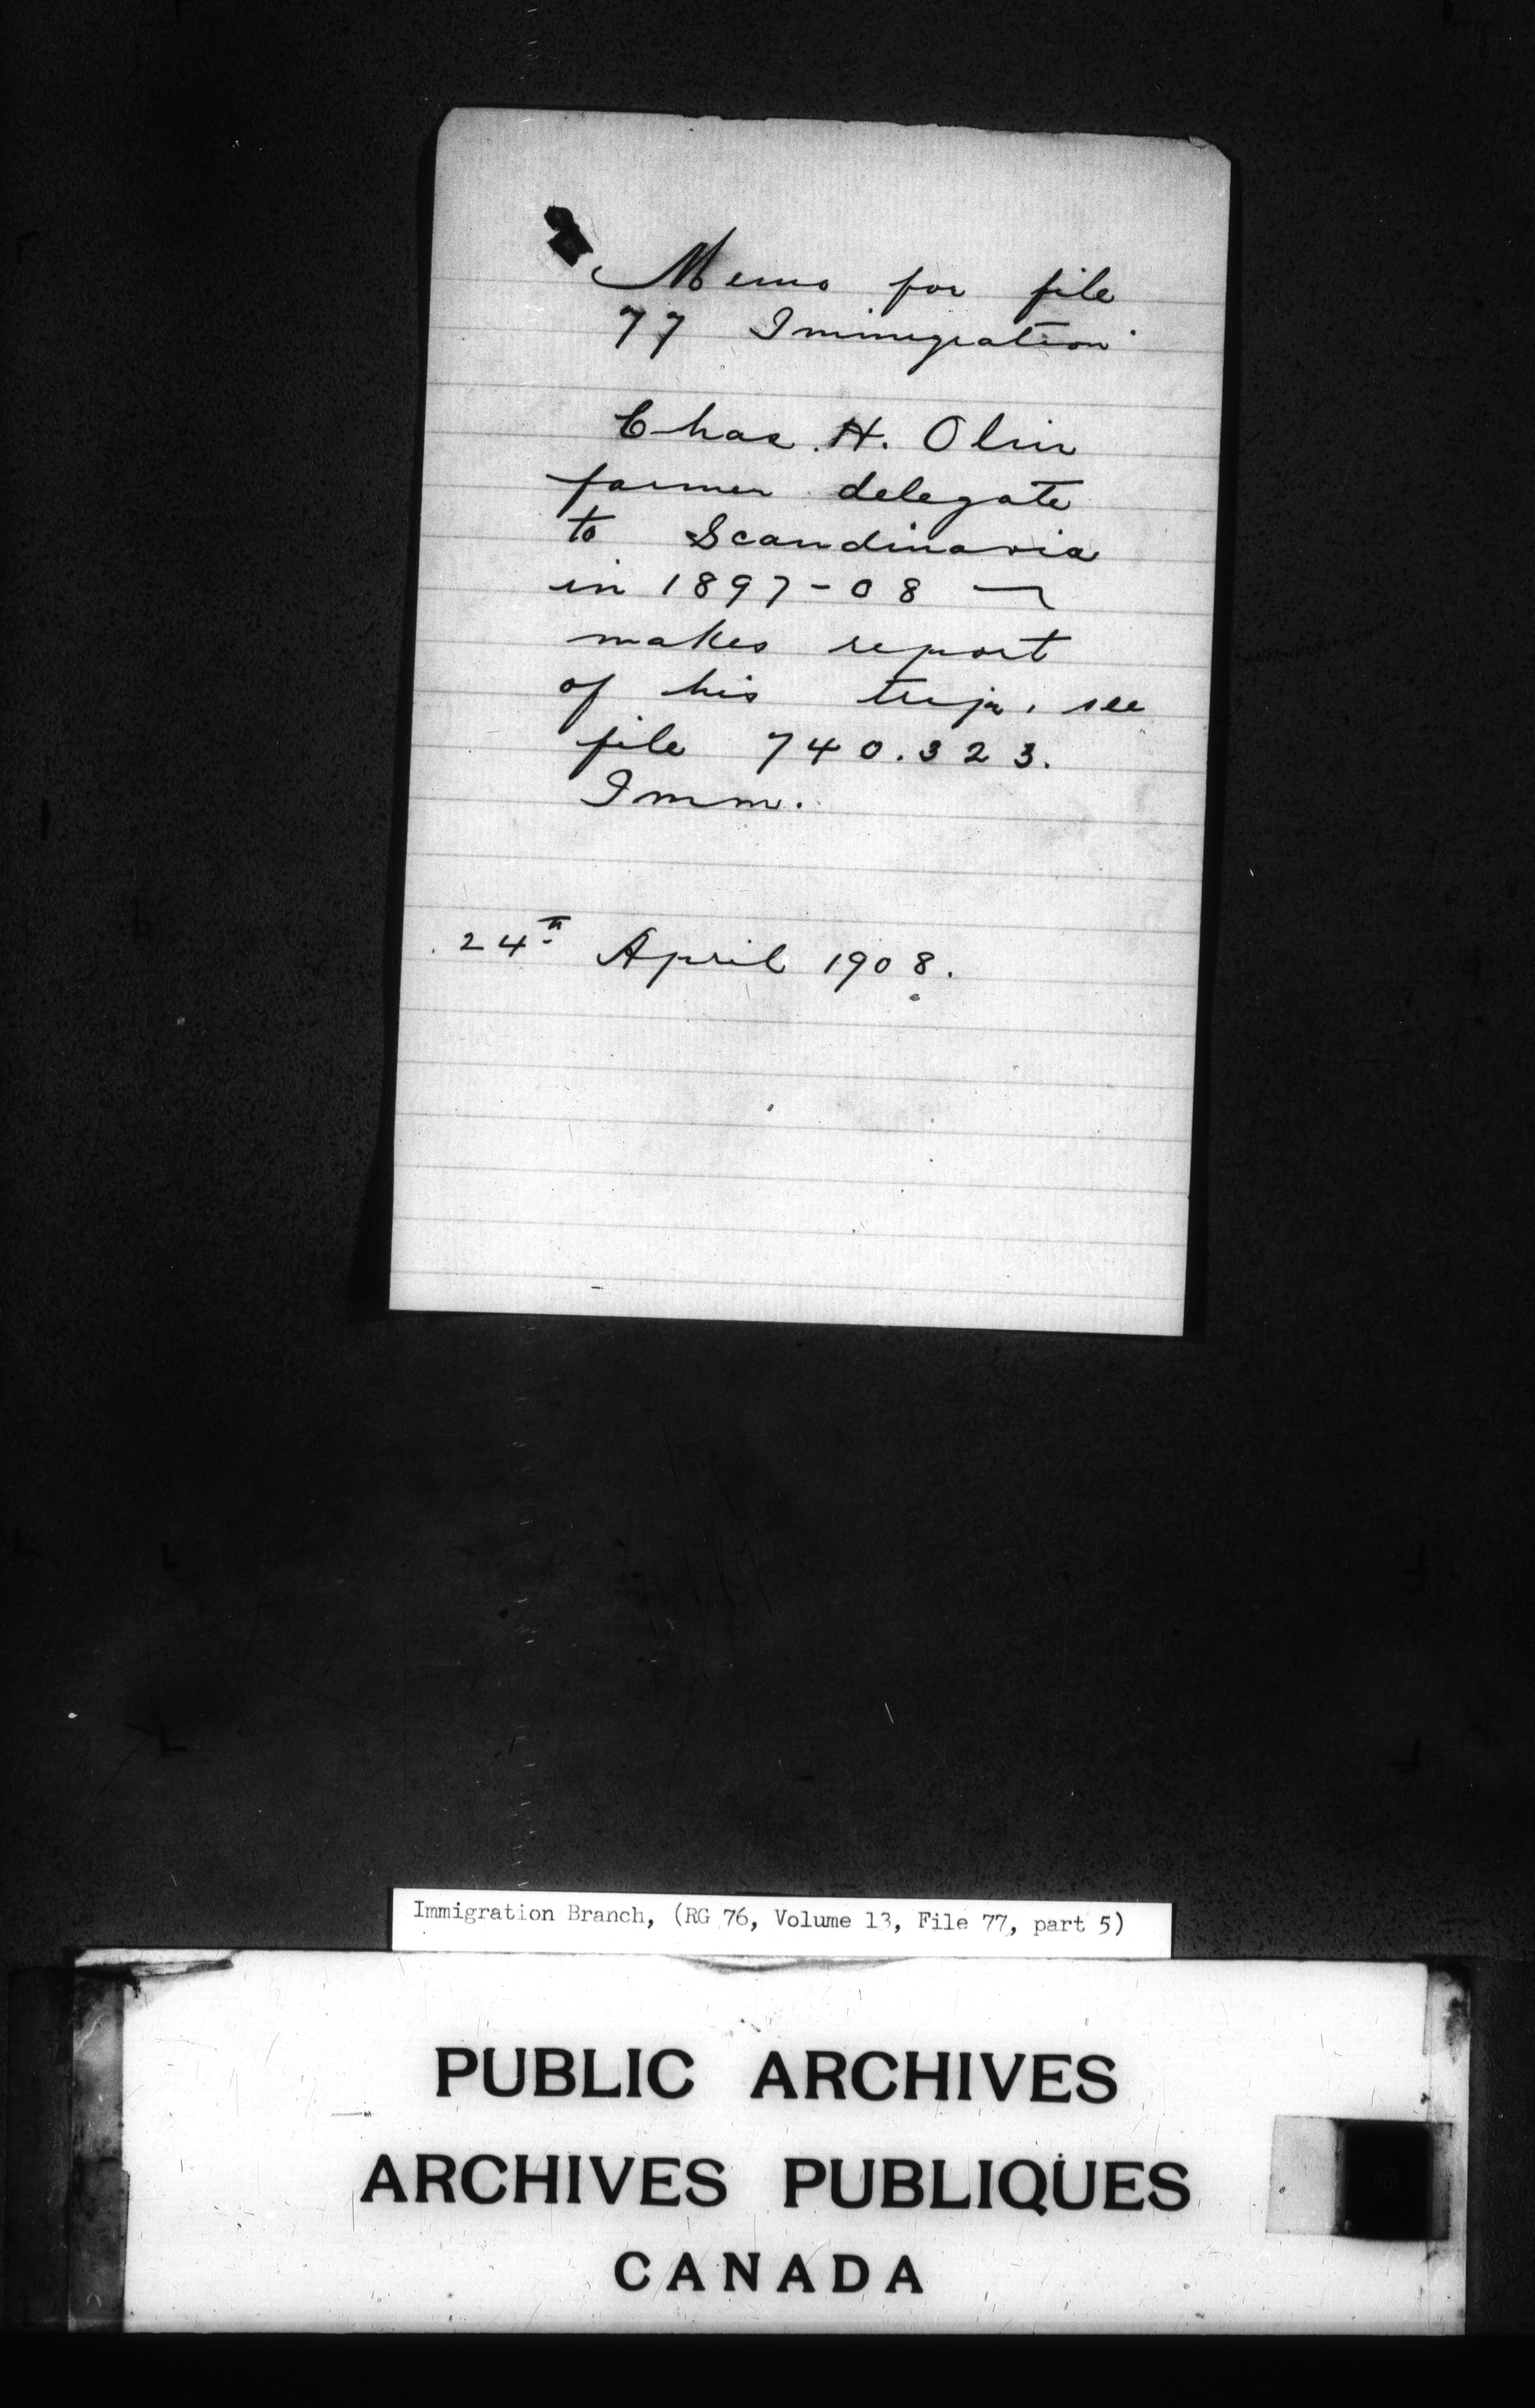 Memo for file
77 Immigration
Chas. H. Olin
farmer delegate
to Scandinavia
in 1897-08 —
makes report
of his trip, see
file 740.323.
Imm.
24th April 1908.
Immigration Branch, (RG 76, Volume 13, File 77, part 5)
PUBLIC ARCHIVES
ARCHIVES PUBLIQUES
CANADA